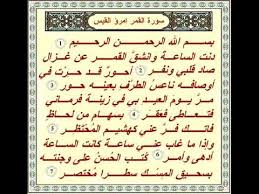 سورة القمر امرؤ القيس
بسم الله الرحمن الرحيم ١
دنت الساعة وانشق القمر عن غزال
صاد قلبي ونفر ٢ أحور قد حرت في
أوصافه ناعس الطرف بعينه حور ٣
مر يوم العيد بي في زينة فرماني
فتعاطى فعقر ٤ بسهام من لحاظ
فاتك فر عني كهشيم المحتظر ٥
وإذا ما غاب عني ساعة كانت الساعة
أدهى وأمر ٦ كتب الحسن على وجنته
بسحيق المسك سطرا مختصر ٧